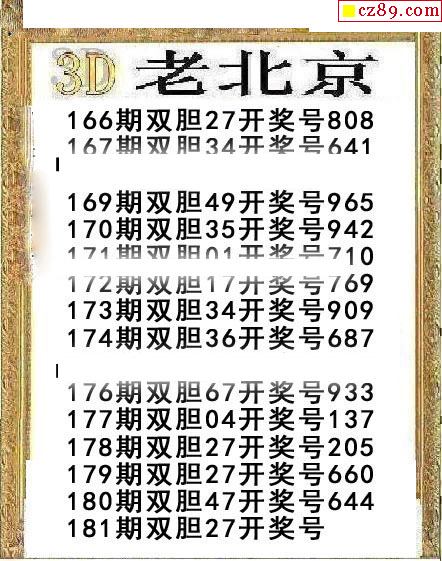 cz89.com
3D 老北京
166期双胆27开奖号808
167期双胆34开奖号641
169期双胆49开奖号965
170期双胆35开奖号942
171期双胆01开奖号710
172期双胆17开奖号769
173期双胆34开奖号909
174期双胆36开奖号687
176期双胆67开奖号933
177期双胆04开奖号137
178期双胆27开奖号205
179期双胆27开奖号660
180期双胆47开奖号644
181期双胆27开奖号